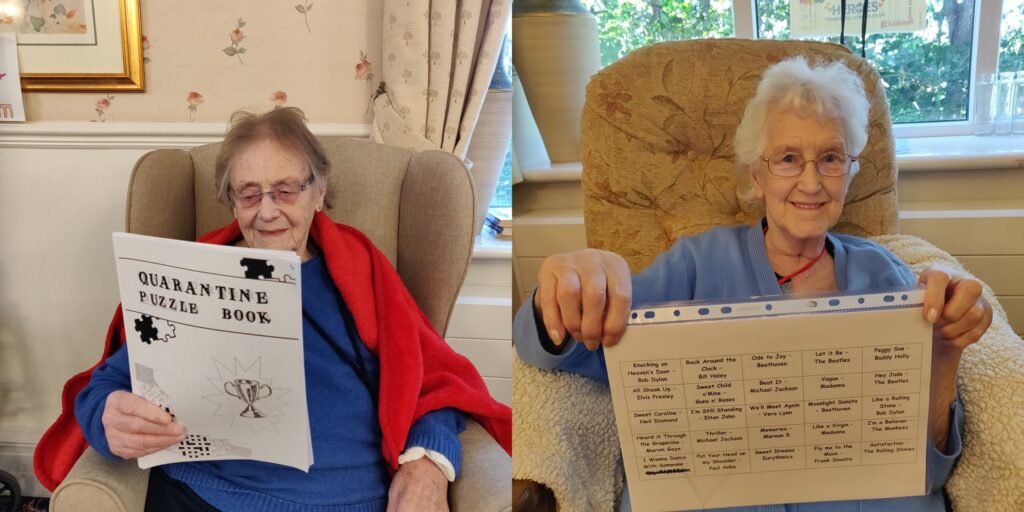 QUARANTINE
PUZZLE BOOK
HORSES
Knocking on
Heaven's Door -
Bob Dylan
Rock Around the
Clock -
Bill Haley
Ode to Joy -
Beethoven
Let it Be -
The Beatles
Peggy Sue -
Buddy Holly
All Shook Up
Elvis Presley
Sweet Child
o'Mine -
Guns n' Roses
Beat It -
Michael Jackson
Vogue -
Madonna
Hey Jude -
The Beatles
Sweet Caroline -
Neil Diamond
I'm Still Standing
- Elton John
We'll Meet Again
- Vera Lynn
Moonlight Sonata
- Beethoven
Like a Rolling
Stone -
Bob Dylan
Heard it Through
the Grapevine
Marvin Gaye
Thriller -
Michael Jackson
Memories -
Maroon 5
Like a Virgin -
Madonna
I'm a Believer -
The Monkees
I Wanna Dance
With Someone
Put Your Head on
my Shoulder -
Paul Anka
Sweet Dreams -
Eurythmics
Fly me to the
Moon -
Frank Sinatra
Satisfaction -
The Rolling Stones